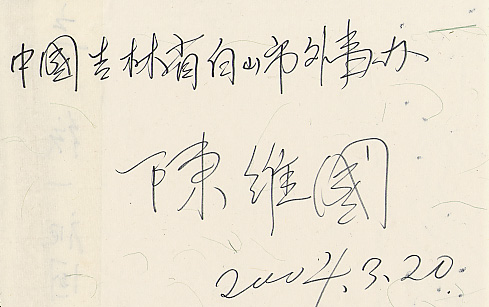 中國吉林省白山市外事办
陳維國
2004.3.20